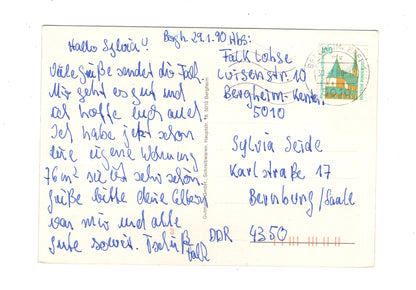 Bergh. 29.1.90 Abs:
Hallo Sylvia!
Viele Grüße sendet dir Falk.
Mir geht es gut und
ich hoffe euch auch.
Ich habe jetzt schon
eine eigene Wohnung
76 m² sie ist sehr schön.
grüße bitte deine Eltern
von mir und alle
gute soweit. Tschüß
Falk
Falk Lohse
Luisenstr. 10
Bergheim-Kenten
5010
Sylvia Seide
Karlstraße 17
Bernburg/Saale
DDR 4350